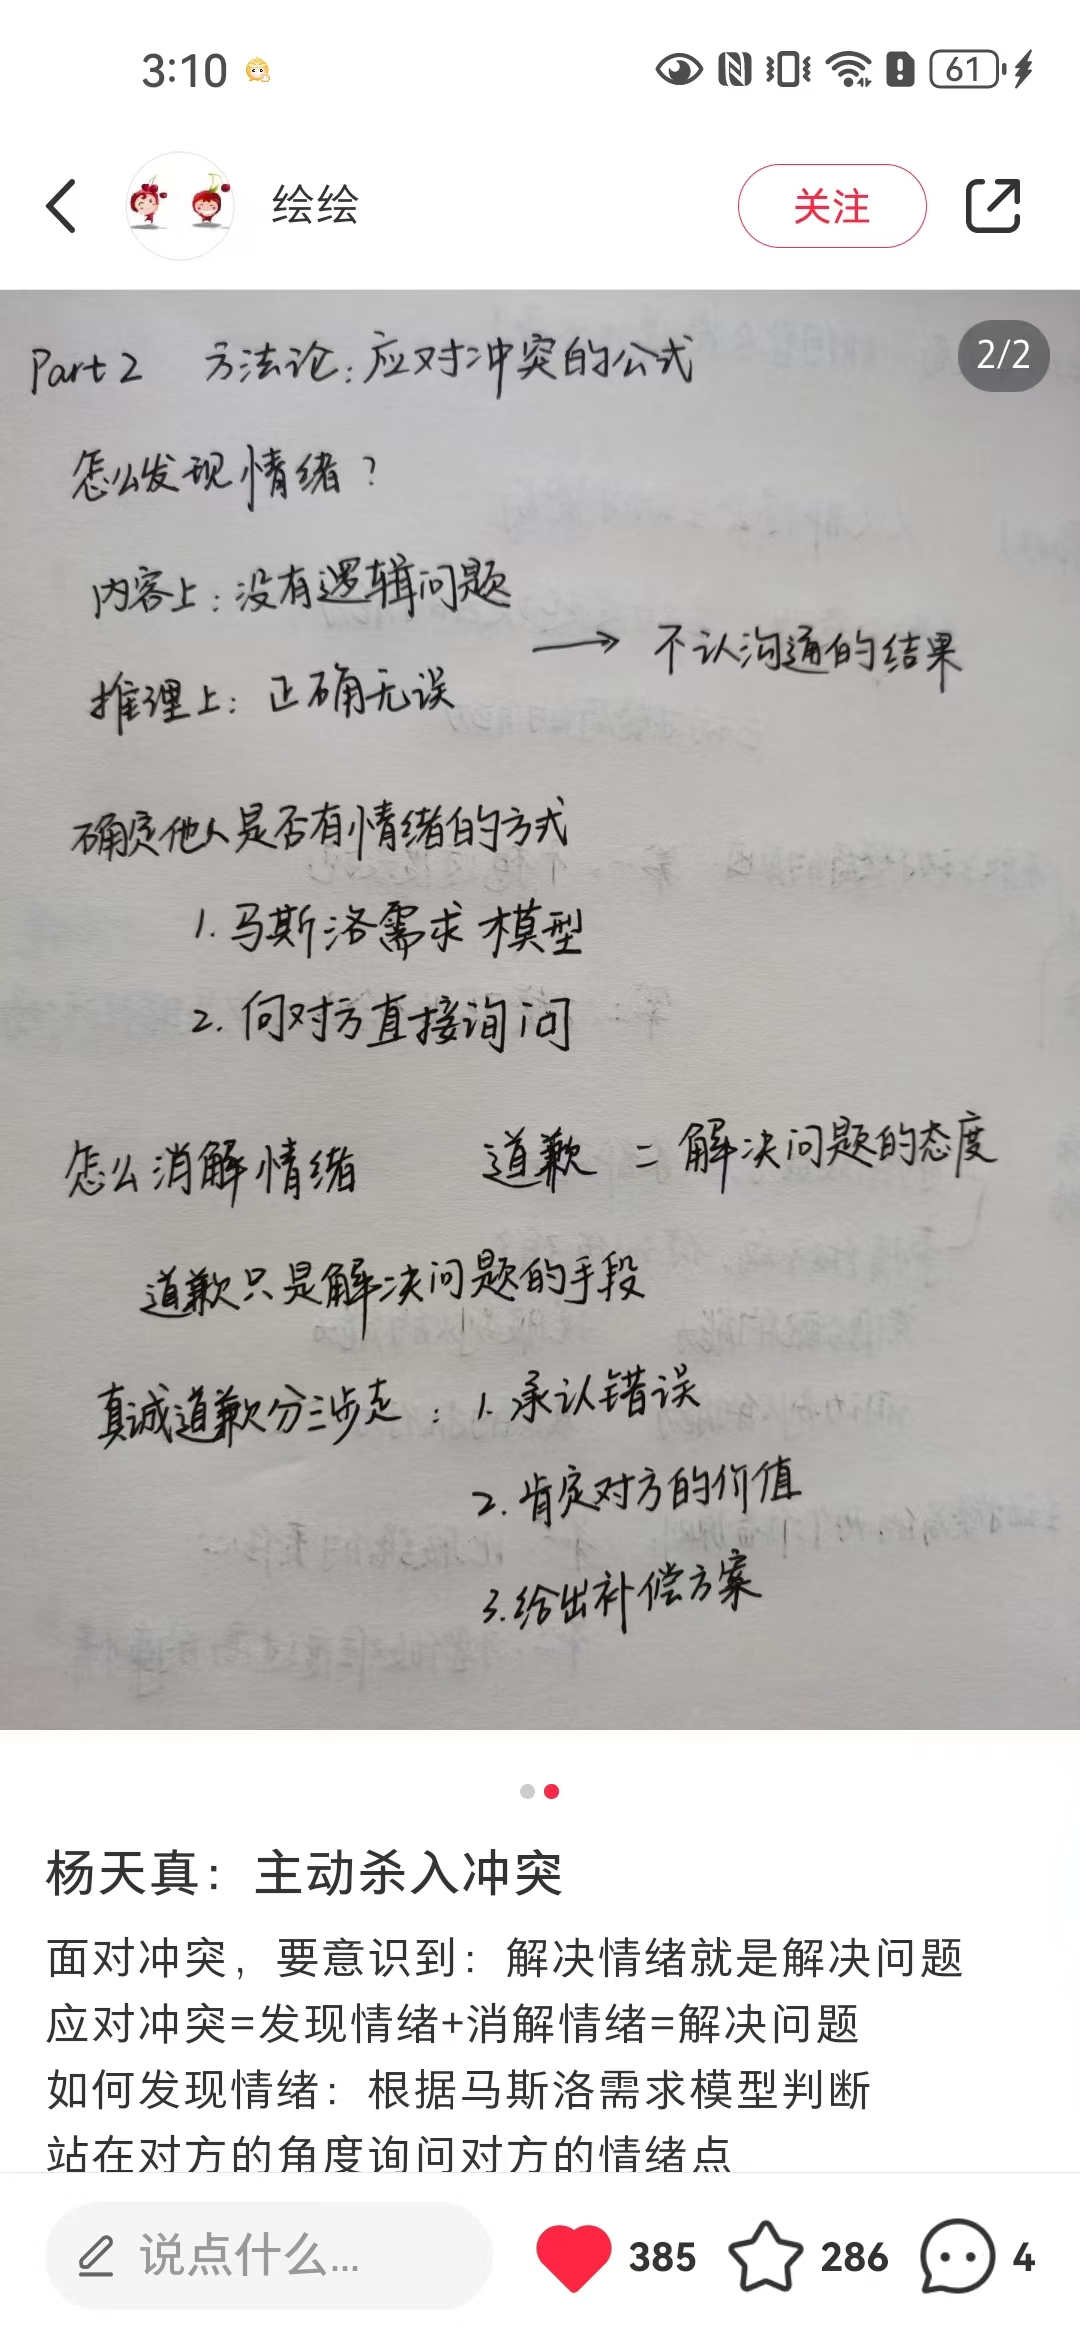 3:10
61
绘绘
关注
2/2
Part 2 方法论:应对冲突的公式
怎么发现情绪?
内容上:没有逻辑问题
→ 不认沟通的结果
推理上:正确无误
确定他人是否有情绪的方式
1. 马斯洛需求模型
2. 向对方直接询问
怎么消解情绪 道歉 = 解决问题的态度
道歉只是解决问题的手段
真诚道歉分三步走:1. 承认错误
2. 肯定对方的价值
3. 给出补偿方案
杨天真:主动杀入冲突
面对冲突,要意识到:解决情绪就是解决问题
应对冲突=发现情绪+消解情绪=解决问题
如何发现情绪:根据马斯洛需求模型判断
站在对方的角度询问对方的情绪点
说点什么...
385
286
4